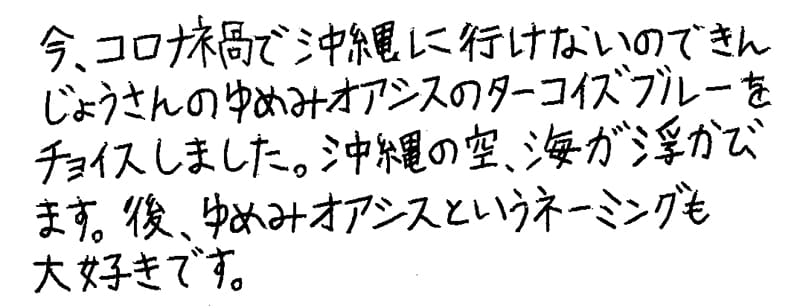 今、コロナ禍で沖縄に行けないのできん
じょうさんのゆめみオアシスのターコイズブルーを
チョイスしました。沖縄の空、海が浮かび
ます。後、ゆめみオアシスというネーミングも
大好きです。